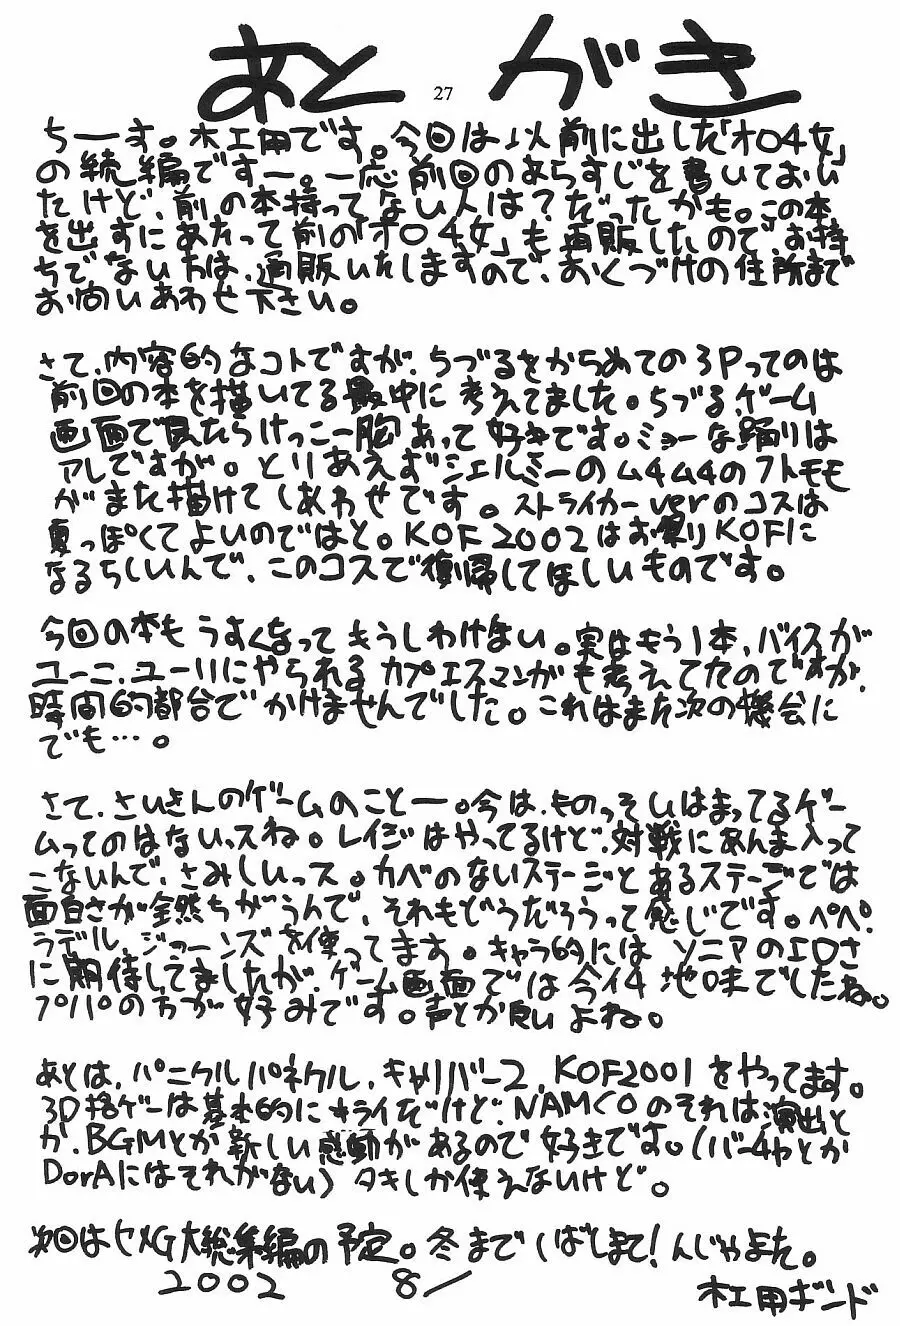 あとがき
27
ちーす。木工用です。今回は以前に出した「オロ4女」
の続編ですー。一応前回のあらすじを書いておい
たけど、前の本持ってない人は?だったかも。この本
を出すにあたって前の「オロ4女」も再販したので、お持
ちでない方は、通販いたしますので、おくづけの住所まで
お問いあわせ下さい。
さて、内容的なコトですが、ちづるをからめての3Pってのは
前回の本を描いてる最中に考えてました。ちづる、ゲーム
画面で見たらけっこー胸あって好きです。ミョーな踊りは
アレですが。とりあえずシェルミーのムチムチのフトモモ
がまた描けてしあわせです。ストライカーverのコスは
夏っぽくてよいのではと。KOF2002はお祭りKOFに
なるらしいんで、このコスで復帰してほしいものです。
今回の本もうすくなってもうしわけない。実はもう1本、バイスが
ユーニ、ユーリにやられるカプエスマンガも考えてたのですが、
時間的都合でかけませんでした。これはまた次の機会に
でも…。
さて、さいきんのゲームのことー。今は、ものっそいはまってるゲー
ムってのはないっスね。レイジはやってるけど、対戦にあんま入って
こないんで、さみしいっス。カベのないステージとあるステージでは
面白さが全然ちがうんで、それもどうだろうって感じです。ペペ、
ラデル、ジョーンズを使ってます。キャラ的にはソニアのエロさ
に期待してましたが、ゲーム画面では今イチ地味でしたね。
プルパの方が好みです。声とか良いよね。
あとは、パニクルパネクル、キャリバー2、KOF2001をやってます。
3D格ゲーは基本的にキライだけど、NAMCOのそれは演出と
か、BGMとか新しい感動があるので好きです。(バーチャとか
DorAにはそれがない)タキしか使えないけど。
次回はヒメG大総集編の予定。冬までしばしまて!んじゃまた。
2002 8/
木工用ボンド